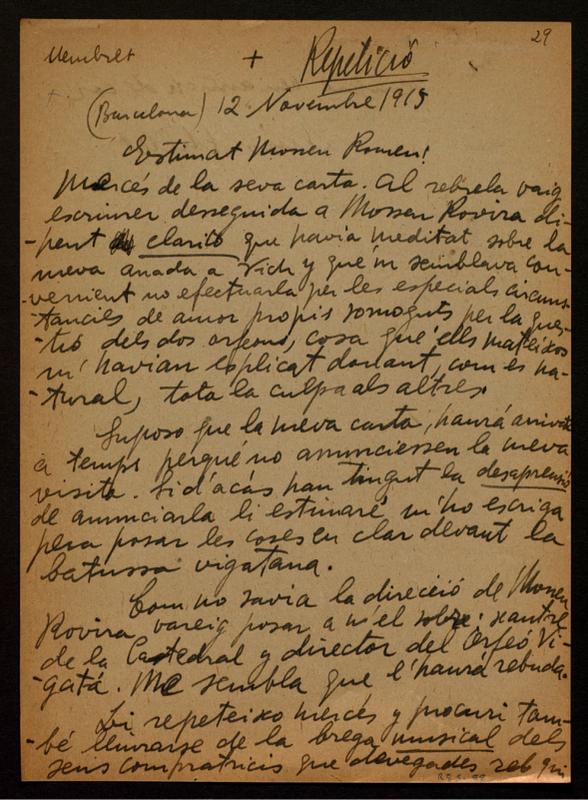 29
Membret + Repetició
(Barcelona) 12 Novembre 1915
Estimat Mossen Romeu!
Mercés de la seva carta. Al rebrela vaig
escriurer desseguida a Mossen Rovira di-
-hent clarito que havia meditat sobre la
meva anada a Vich y que m semblava con-
-venient no efectuarla per les especials circuns-
-tancies de amor propis somoguts per la ques-
-tió dels dos orfeons, cosa que ells mateixos
m' havian esplicat donant, com es na-
-tural, tota la culpa als altres.
Suposo que la meva carta, haurá arrivat
a temps perqué no anunciessen la meva
visita. Si d'acás han tingut la desaprensió
de anunciarla li estimaré m'ho escriga
pera posar les coses en clar devant la
batussa vigatana.
Com no savia la direcció de Mossen
Rovira vareig posar a n'el sobre: xantre
de la Catedral y director del Orfeó Vi-
-gatá. Me sembla que l'haurá rebuda.
Li repeteixo mercés y procuri tam-
-bé lliurarse de la brega musical dels
seus compatricis que devegades reb qui